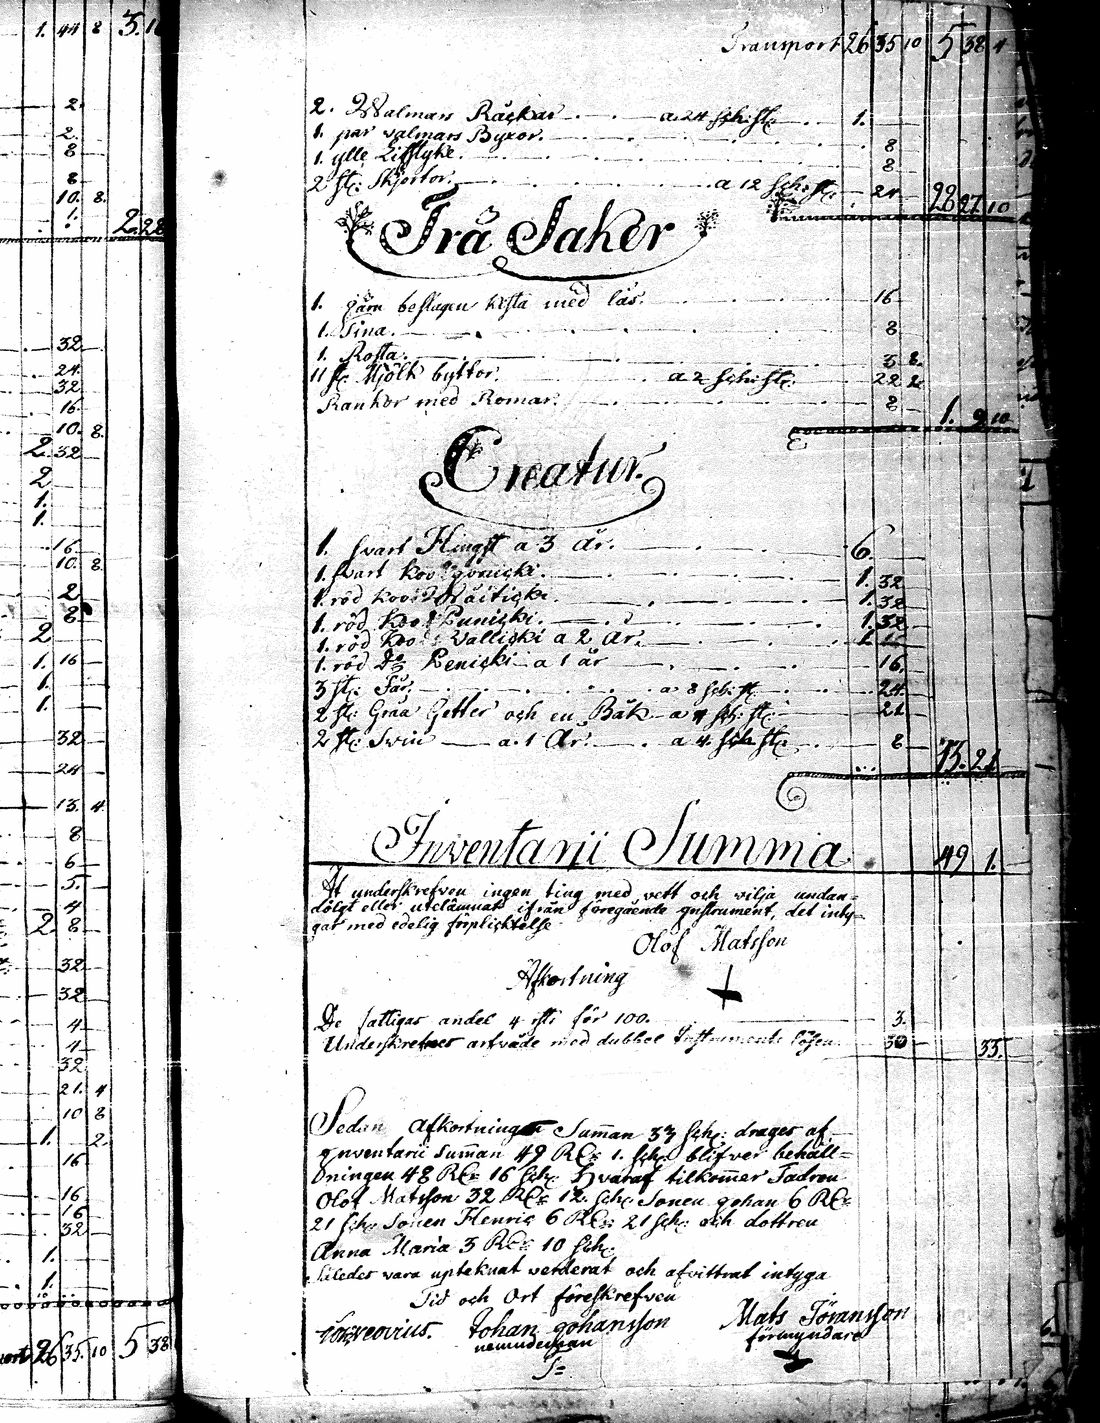 1. 44 8 3.
2.
2.
8
8
10. 8.
1.
2.28
32
24
32
16
10. 8.
2. 32
2
1.
1.
16
10. 8
2
8
2
1. 16
1.
1.
32
24
13. 4
8
6
5.
4
2. 8
32
32
4
4
32
21. 4
10 8
1. 2
16
16
16
32
1.
1.
26 35. 10 5 38
Transport 26 35 10 5 38 4
2. Walmars Råckar a 24 sch: st: 1.
1. par valmars Byxor. 8
1. ylle Lifstyke. 8
2 st: Skjortor. a 12 sch: st: 24 28 27. 10
Trä Saker
1. järn beslagen kista med lås. 16
1. Tina. 8
1. Rosta. 3 8.
11 st: Mjölk byttor. a 2 sch: st: 22
Rankor med Romar. 8 1. 9 10
Creatur.
1. svart Hingst a 3 år. 6.
1. svart Koo 1. 32
1. röd Koo 1. 32
1. röd Koo Punicki. 1. 32
1. röd Koo Wallicki a 2 år.
1. röd Do Penicki a 1 år 16.
3 st: Får. a 8 sch: st: 24.
2 st: Gråa Getter och en Båk a sch: st: 21
2 st: Swin a. 1 År. a 4. sch st: 8
13. 21
Inventarii Summa 49 1.
At underskrefven ingen ting med vett och vilja undan=
dölgt eller utelämnat ifrån föregående ynstrument, det inty=
gar med edelig förplicktelse
Olof Matsson
Afkortning
De fattigas andel 4 för 100. 3.
Underskrefnes arfvode med dubbel Instruments lösen. 30 33.
Sedan Afkortningen Summan 33 sch: drages af
ynventarii summan 49 RDr 1. sch: blifver behåll=
dningen 48 RDr 16 sch: Hvaraf tilkommer Fadren
Olof Matsson 32 RDr 12. sch: Sonen johan 6 RDr
21 sch: Sonen Henric 6 RDr: 21 sch: och dottren
Anna Maria 3 RDr 10 sch:
Således vara upteknat verderat och afvittrat intyga
Tid och Ort föreskrefven
Johan johansson
nemndeman
Mats Jöransson
förmyndare